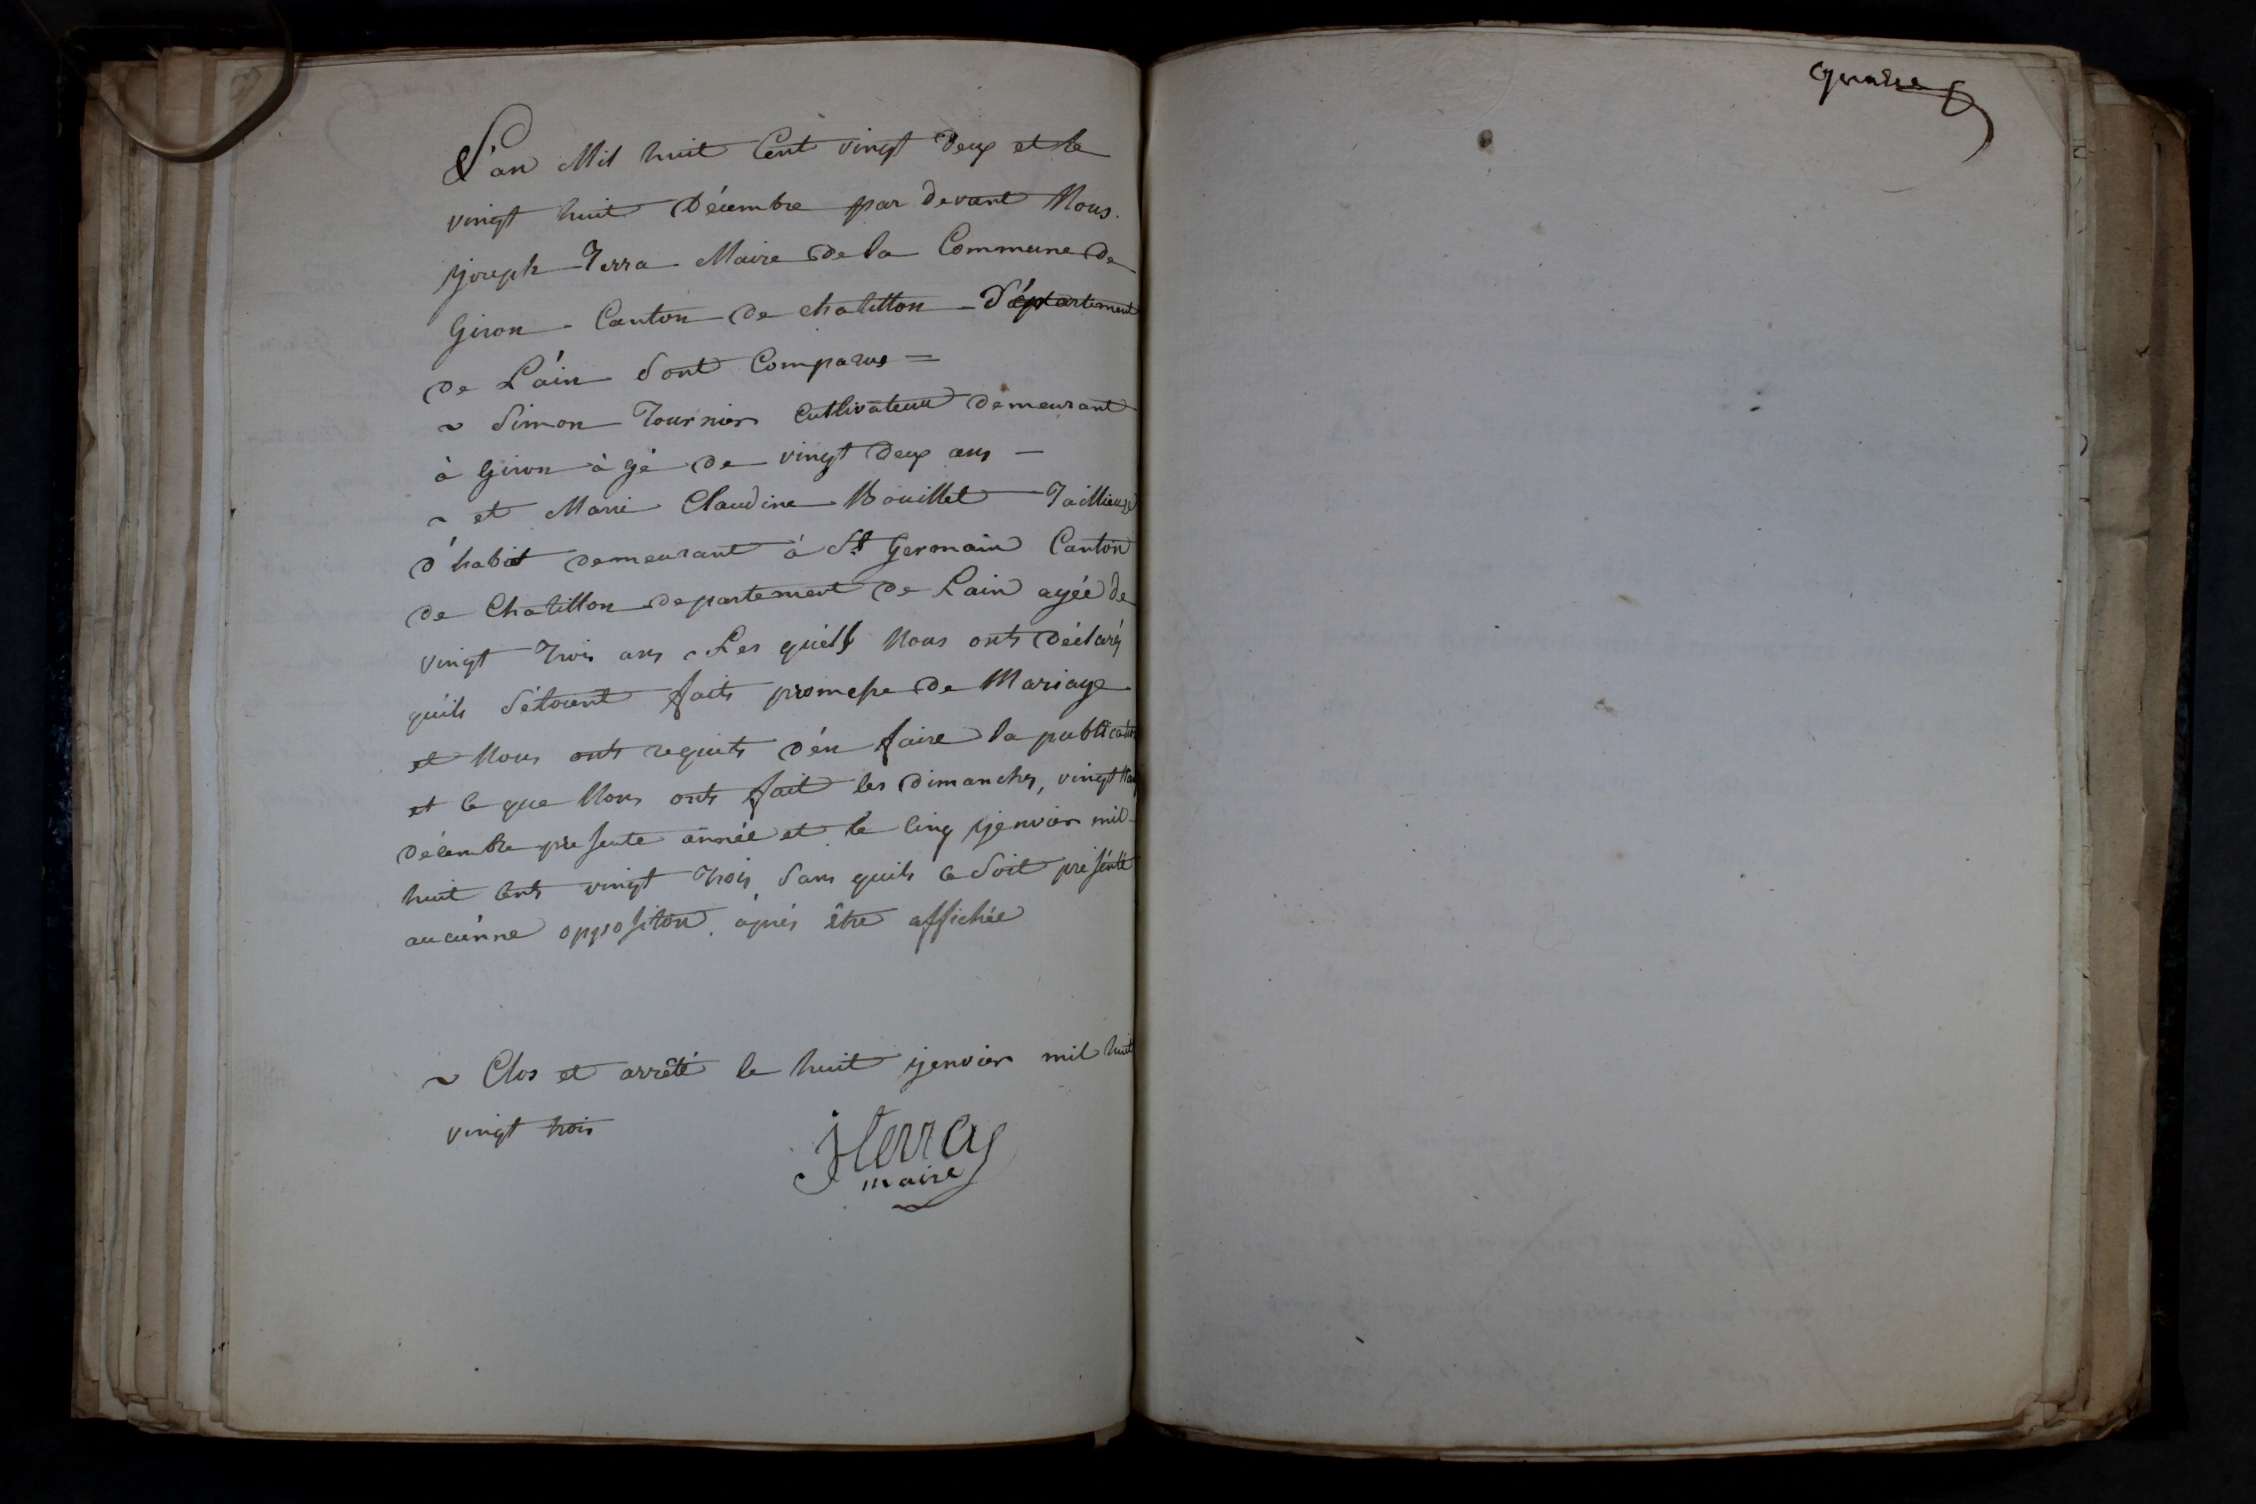 L'an Mil huit Cent vingt deux et le
vingt huit Décembre par devant Nous
Joseph Terra Maire de la Commune de
Giron Canton de chatillon Département
de L'ain Sont Comparus =
~ Simon Tournier Cultivateur demeurant
à Giron à gé de vingt deux ans —
~ et Marie Claudine Bouillet Tailleuse
d'habit demeurant à St Germain Canton
de Chatillon departement de Lain agée de
vingt trois ans Les quells Nous onts déclarés
quils S'étoient faits promesse de Mariage
et Nous onts requits d'én faire la publication
et ce que Nous onts fait les dimanches, vingt
décembre presente année et le cinq jenvier mil
huit cents vingt trois, Sans quils ce Soit présénté
aucunne oppositon après être affichée
~ Clos et arrêté le huit jenvier mil huit
vingt trois
JTerra
maire
quatre